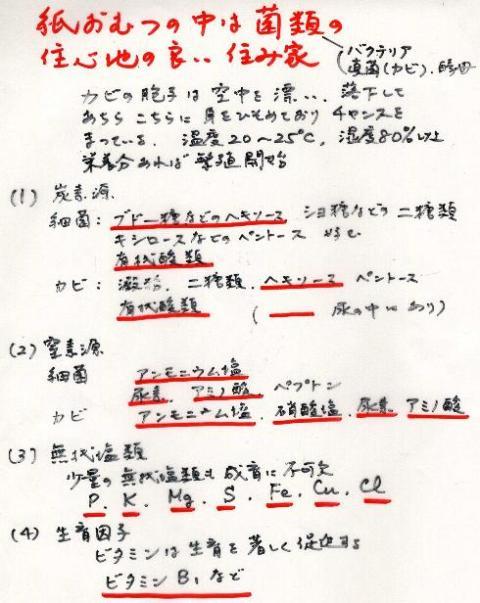 紙おむつの中は菌類の
住心地の良い住み家
バクテリア
真菌(カビ).酵母
カビの胞子は空中を漂い、落下して
あちらこちらに身をひそめており チャンスを
まっている. 温度20〜25℃, 湿度80%以上
栄養分あれば繁殖開始
(1) 炭素源
細菌: ブドー糖などのヘキソース ショ糖などの二糖類
キシロースなどのペントース
有機酸類
カビ: 澱粉. 二糖類. ヘキソース ペントース
有機酸類 ( 尿の中にあり)
(2) 窒素源
細菌 アンモニウム塩
尿素. アミノ酸 ペプトン
カビ アンモニウム塩. 硝酸塩. 尿素 アミノ酸
(3) 無機塩類
少量の無機塩類も成育に不可欠
P. K. Mg. S. Fe. Cu. Cl
(4) 生育因子
ビタミンは生育を著しく促進する
ビタミンB1など